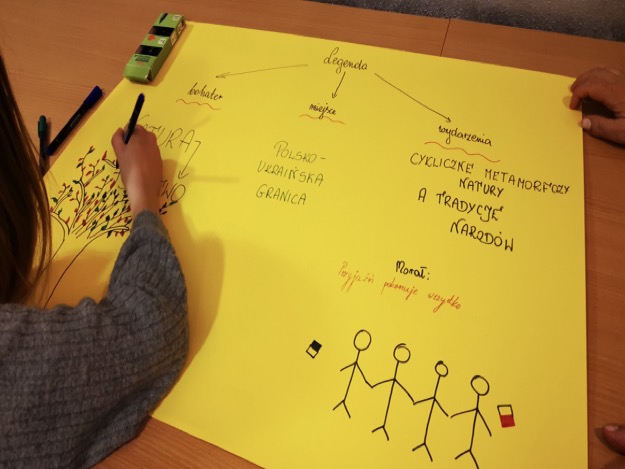 Legenda
bohater
miejsce
wydarzenia
POLSKO-
UKRAIŃSKA
GRANICA
CYKLICZNE METAMORFOZY
NATURY
A TRADYCJE
NARODÓW
Morał:
Przyjaźń pokonuje wszystko